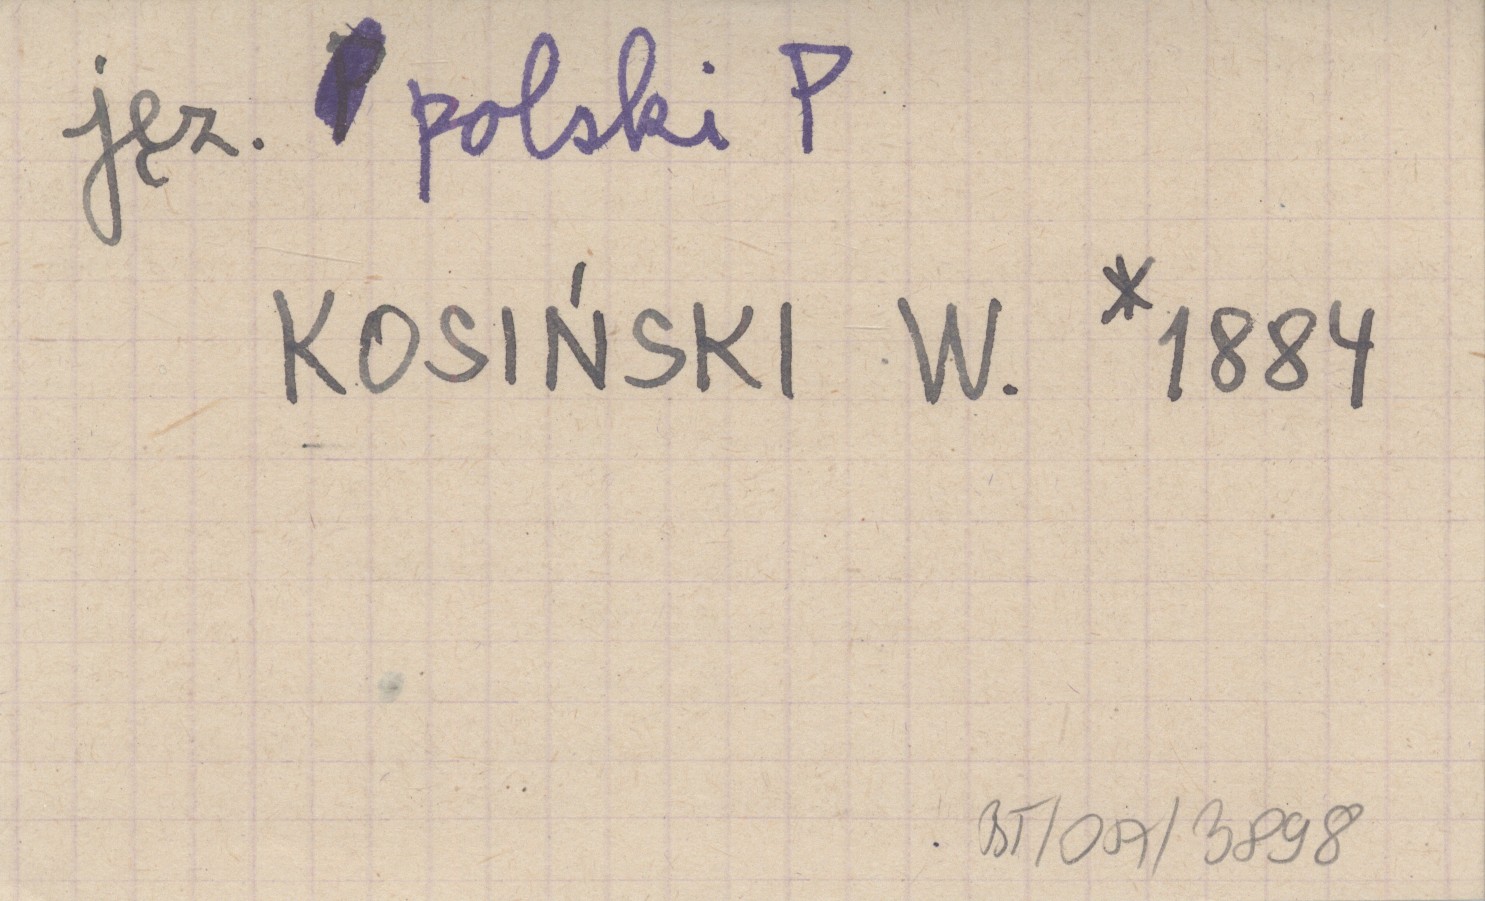 jęz. polski P
KOSIŃSKI W. *1884
BT/OA/3898